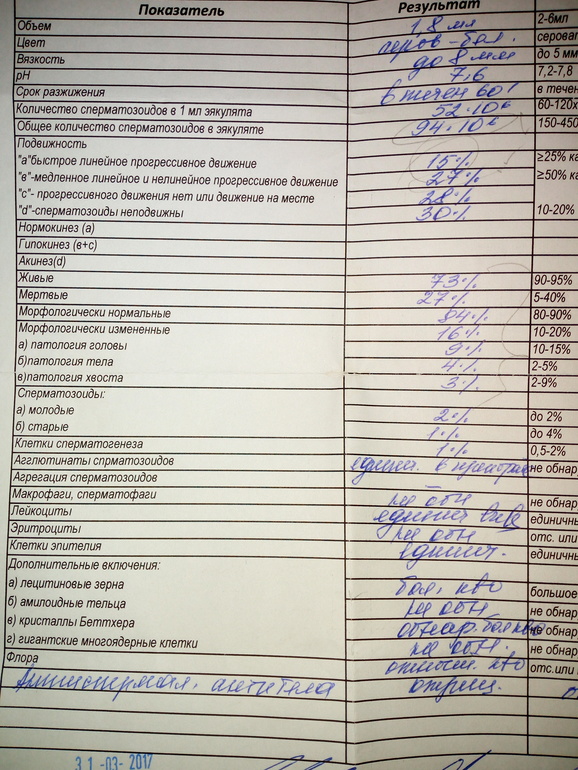 Показатель Результат
Объем 1,8 мл 2-6мл
Цвет серов-бел. серова
Вязкость до 8 мм до 5 мм
pH 7,6 7,2-7,8
Срок разжижения в течен 60' в течен
Количество сперматозоидов в 1 мл эякулята 52·10⁶ 60-120х
Общее количество сперматозоидов в эякуляте 94·10⁶ 150-450
Подвижность
"а"быстрое линейное прогрессивное движение 15% ≥25% ка
"в"-медленное линейное и нелинейное прогрессивное движение 27% ≥50% ка
"с"- прогрессивного движения нет или движение на месте 28%
"d"-сперматозоиды неподвижны 30% 10-20%
Нормокинез (а)
Гипокинез (в+с)
Акинез(d)
Живые 73% 90-95%
Мертвые 27% 5-40%
Морфологически нормальные 84% 80-90%
Морфологически измененные 16% 10-20%
а) патология головы 9% 10-15%
б)патология тела 4% 2-5%
в)патология хвоста 3% 2-9%
Сперматозоиды:
а) молодые 2% до 2%
б) старые 1% до 4%
Клетки сперматогенеза 1% 0,5-2%
Агглютинаты спрматозоидов единич. в не обнар
Агрегация сперматозоидов
Макрофаги, сперматофаги не обн не обнар
Лейкоциты единич единичны
Эритроциты не обн отс. или
Клетки эпителия единич. единичны
Дополнительные включения:
а) лецитиновые зерна бол. кво большое
б) амилоидные тельца не обн не обнар
в) кристаллы Беттхера обнар. бол кво не обнар
г) гигантские многоядерные клетки не обн. не обнар
Флора кво отс.или
Антиспермал. антитела отриц.
31-03-2017